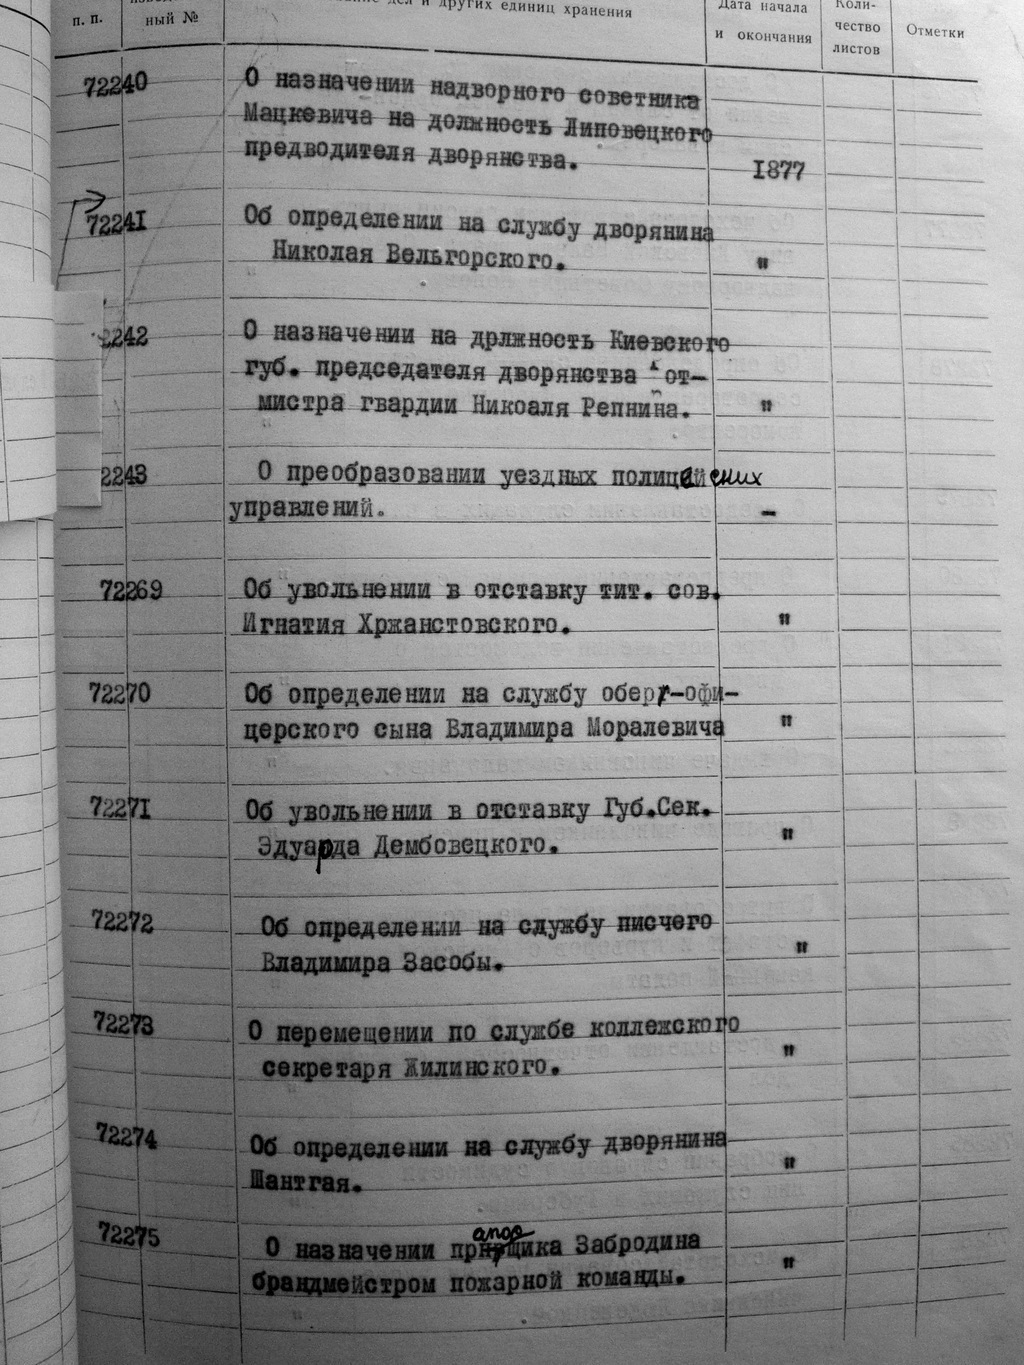 п. п.
ный №
дел и других единиц хранения
Дата начала
и окончания
Коли-
чество
листов
Отметки
72240
О назначении надворного советника
Мацкевича на должность Липовецкого
предводителя дворянства.
1877
72241
Об определении на службу дворянина
Николая Вельгорского.
"
2242
О назначении на држность Киевского
губ. председателя дворянства от-
мистра гвардии Никоаля Репнина.
"
2243
О преобразовании уездных полицейских
управлений.
-
72269
Об увольнении в отставку тит. сов.
Игнатия Хржанстовского.
"
72270
Об определении на службу обер-офи-
церского сына Владимира Моралевича
"
72271
Об увольнении в отставку Губ.Сек.
Эдуарда Дембовецкого.
"
72272
Об определении на службу писчего
Владимира Засобы.
"
72273
О перемещении по службе коллежского
секретаря Жилинского.
"
72274
Об определении на службу дворянина
Шантгая.
"
72275
О назначении прапорщика Забродина
брандмейстром пожарной команды.
"